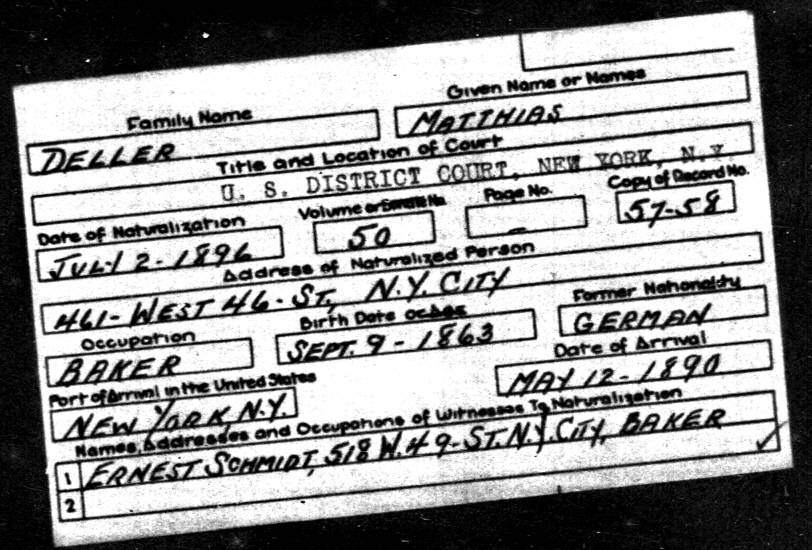 Family Name
Given Name or Names
DELLER
MATTHIAS
Title and Location of Court
U. S. DISTRICT COURT, NEW YORK, N.Y.
Date of Naturalization
Volume or Bundle No.
Page No.
Copy of Record No.
JULY 2-1896
50
-
57-58
Address of Naturalized Person
461-WEST 46-ST, N.Y. CITY
Occupation
Birth Date or Age
Former Nationality
BAKER
SEPT. 9-1863
GERMAN
Port of Arrival in the United States
Date of Arrival
NEW YORK, N.Y.
MAY 12-1890
Names, Addresses and Occupations of Witnesses To Naturalization
1 ERNEST SCHMIDT, 518 W. 49-ST. N.Y. CITY, BAKER
2